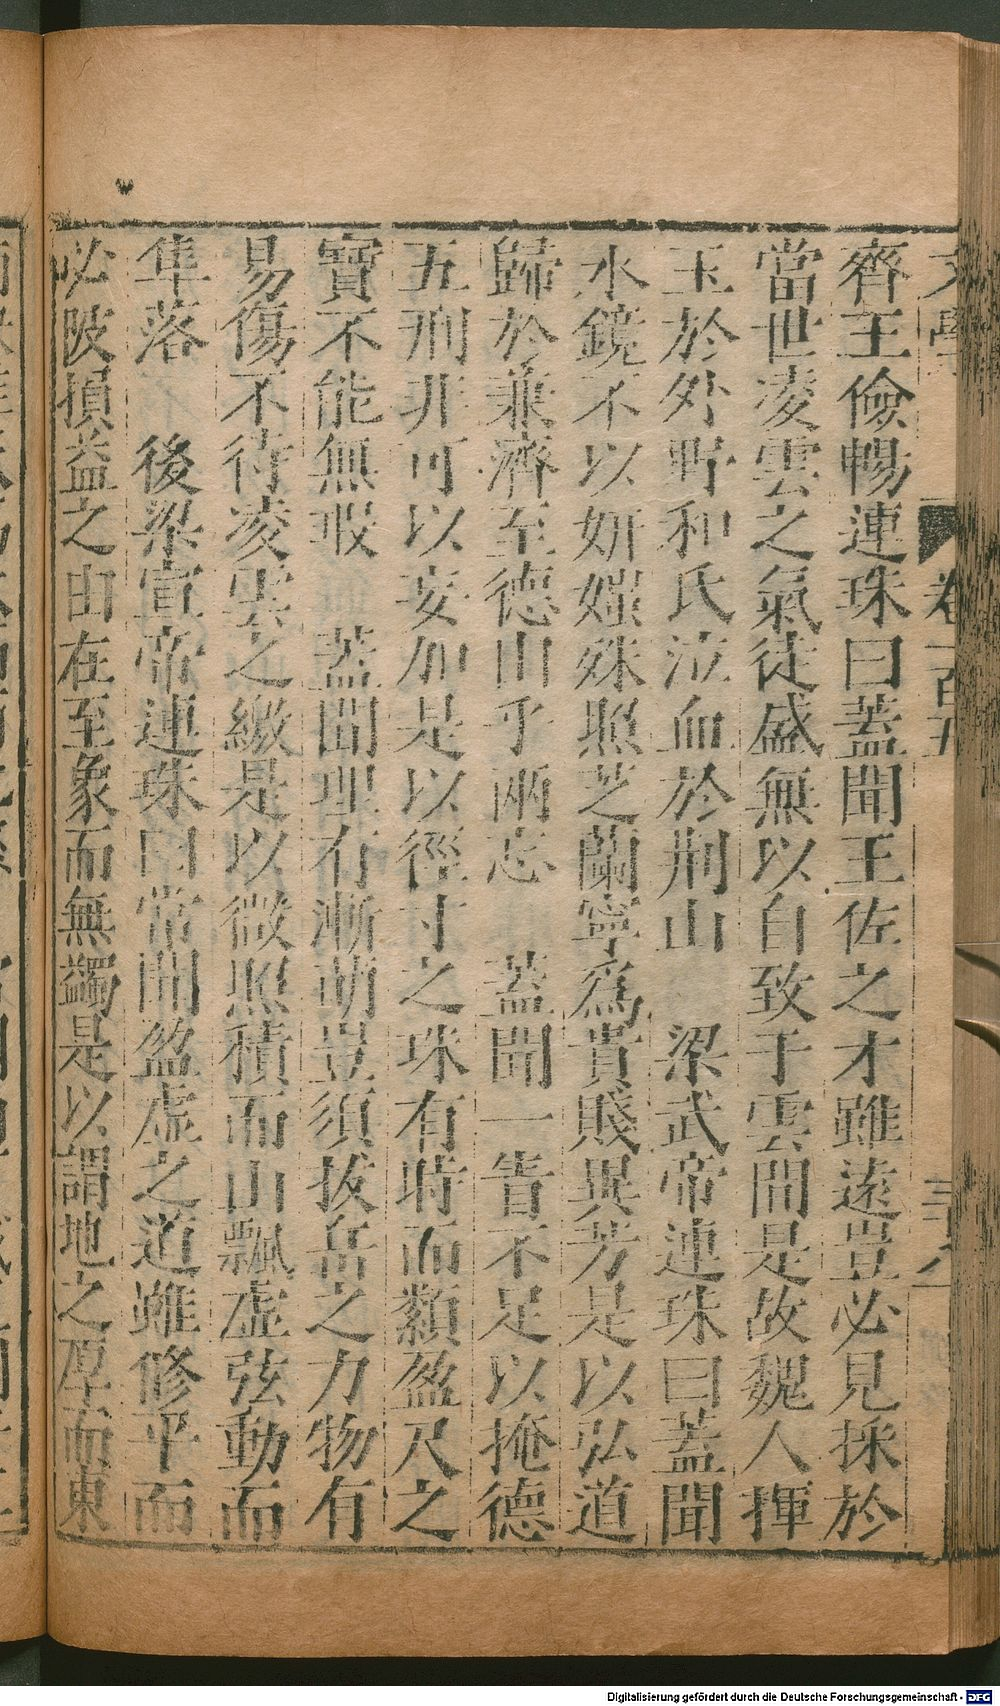 齊王儉暢連珠曰蓋聞王佐之才雖遠豈必見採於
當世凌雲之氣徒盛無以自致于雲間是故魏人揮
玉於外野和氏泣血於荆山　梁武帝連珠曰蓋聞
水鏡不以妍媸殊照芝蘭寧爲貴賤異芳是以弘道
歸於兼濟至德由乎兩忘　蓋聞一眚不足以掩德
五刑非可以妄加是以徑寸之珠有時而纇盈尺之
寶不能無瑕　蓋聞理有漸萌豈須拔岳之力物有
易傷不待凌雲之繳是以微照積而山飄虛弦動而
隼落　後梁宣帝連珠曰常聞盈虛之道雖修平而
必陂損益之由在至象而無蠲是以謂地之厚而東
卷一百五
Digitalisierung gefördert durch die Deutsche Forschungsgemeinschaft - DFG